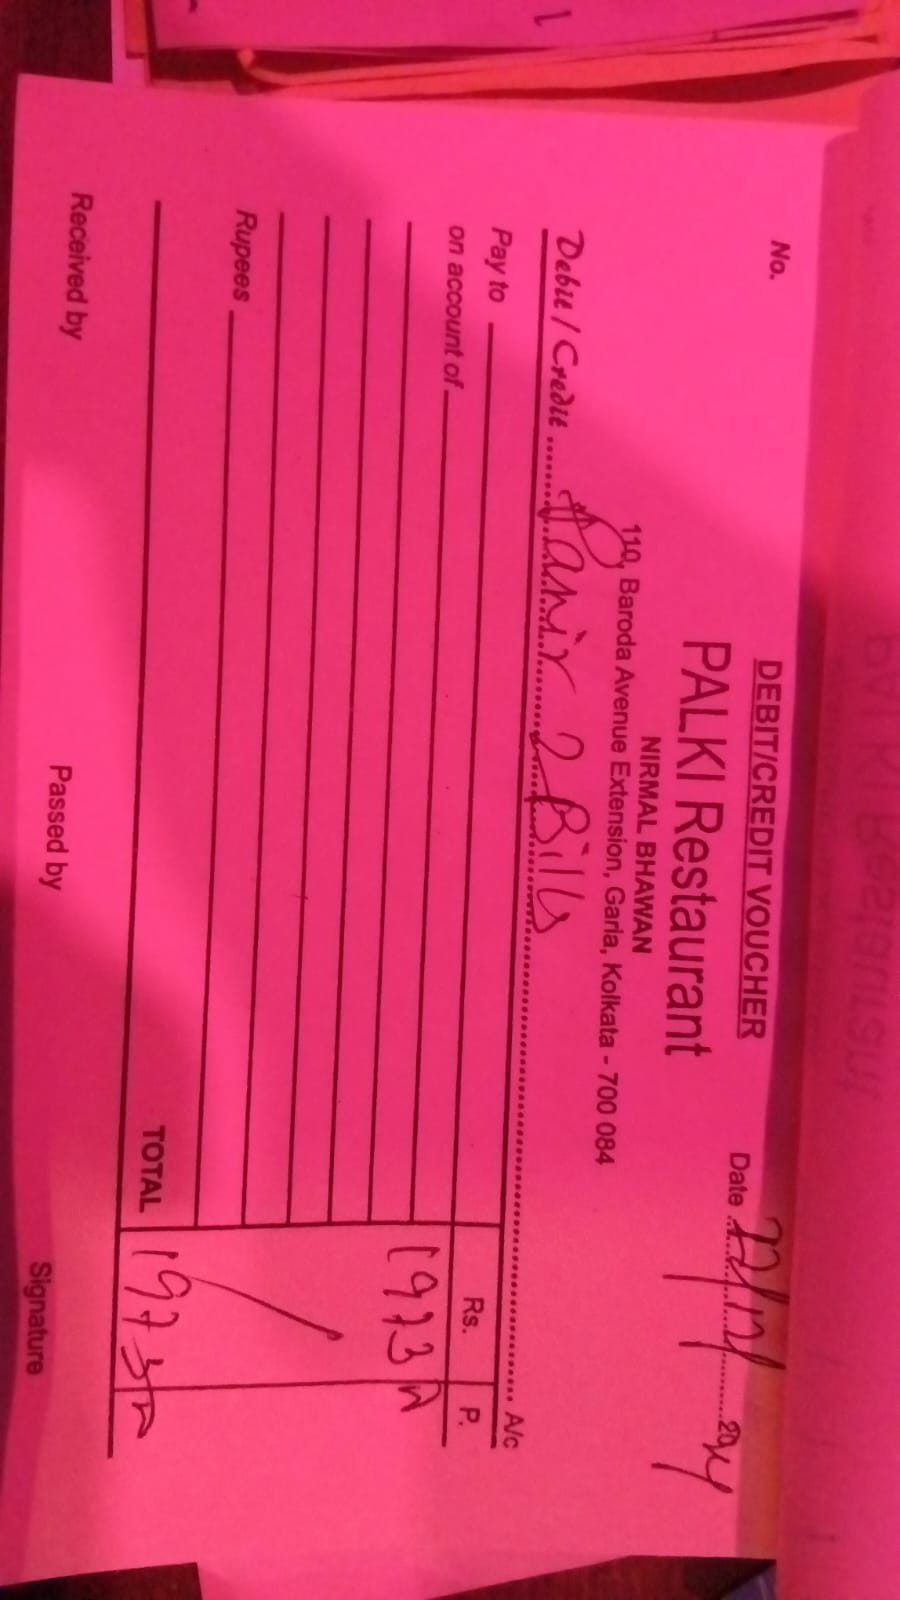 DEBIT/CREDIT VOUCHER
No.
PALKI Restaurant
Date
NIRMAL BHAWAN
110, Baroda Avenue Extension, Garia, Kolkata - 700 084
Debit / Credit Panir 2 Bills A/c
Pay to Rs. P.
on account of
1973
Rupees
TOTAL 1973
Received by Passed by Signature